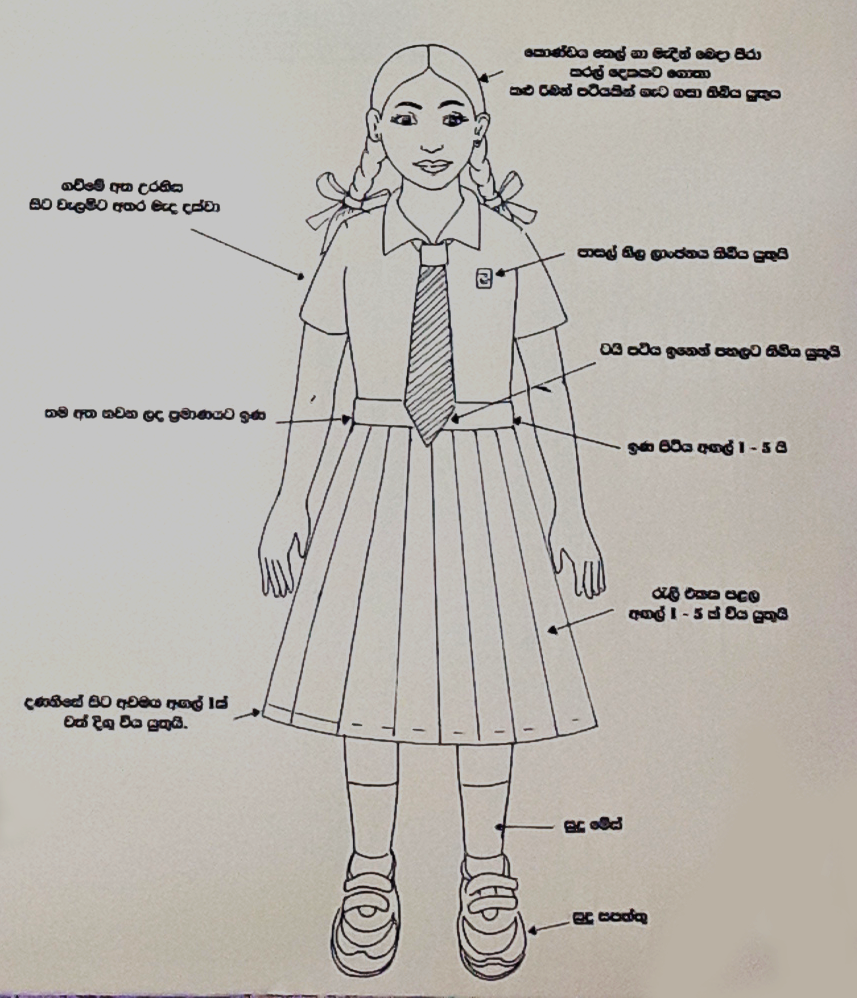 කොණ්ඩය තෙල් ගා මැදින් බෙදා පීරා
කරල් දෙකකට ගොතා
කළු රිබන් පටියකින් ගැට ගසා තිබිය යුතුය
ගව්මේ අත උරහිස
සිට වැලමිට අතර මැද දක්වා
පාසල් නිල ලාංඡනය තිබිය යුතුයි
ටයි පටිය ඉනෙන් පහලට තිබිය යුතුයි
තම අත ගවන ලද ප්‍රමාණයට ඉණ
ඉණ පටිය අඟල් 1 - 5 යි
රැලි එකක පළල
අඟල් 1 - 5 ක් විය යුතුයි
දණහිසේ සිට අවමය අඟල් 1ක්
වත් දිගු විය යුතුයි.
සුදු මේස්
සුදු සපත්තු